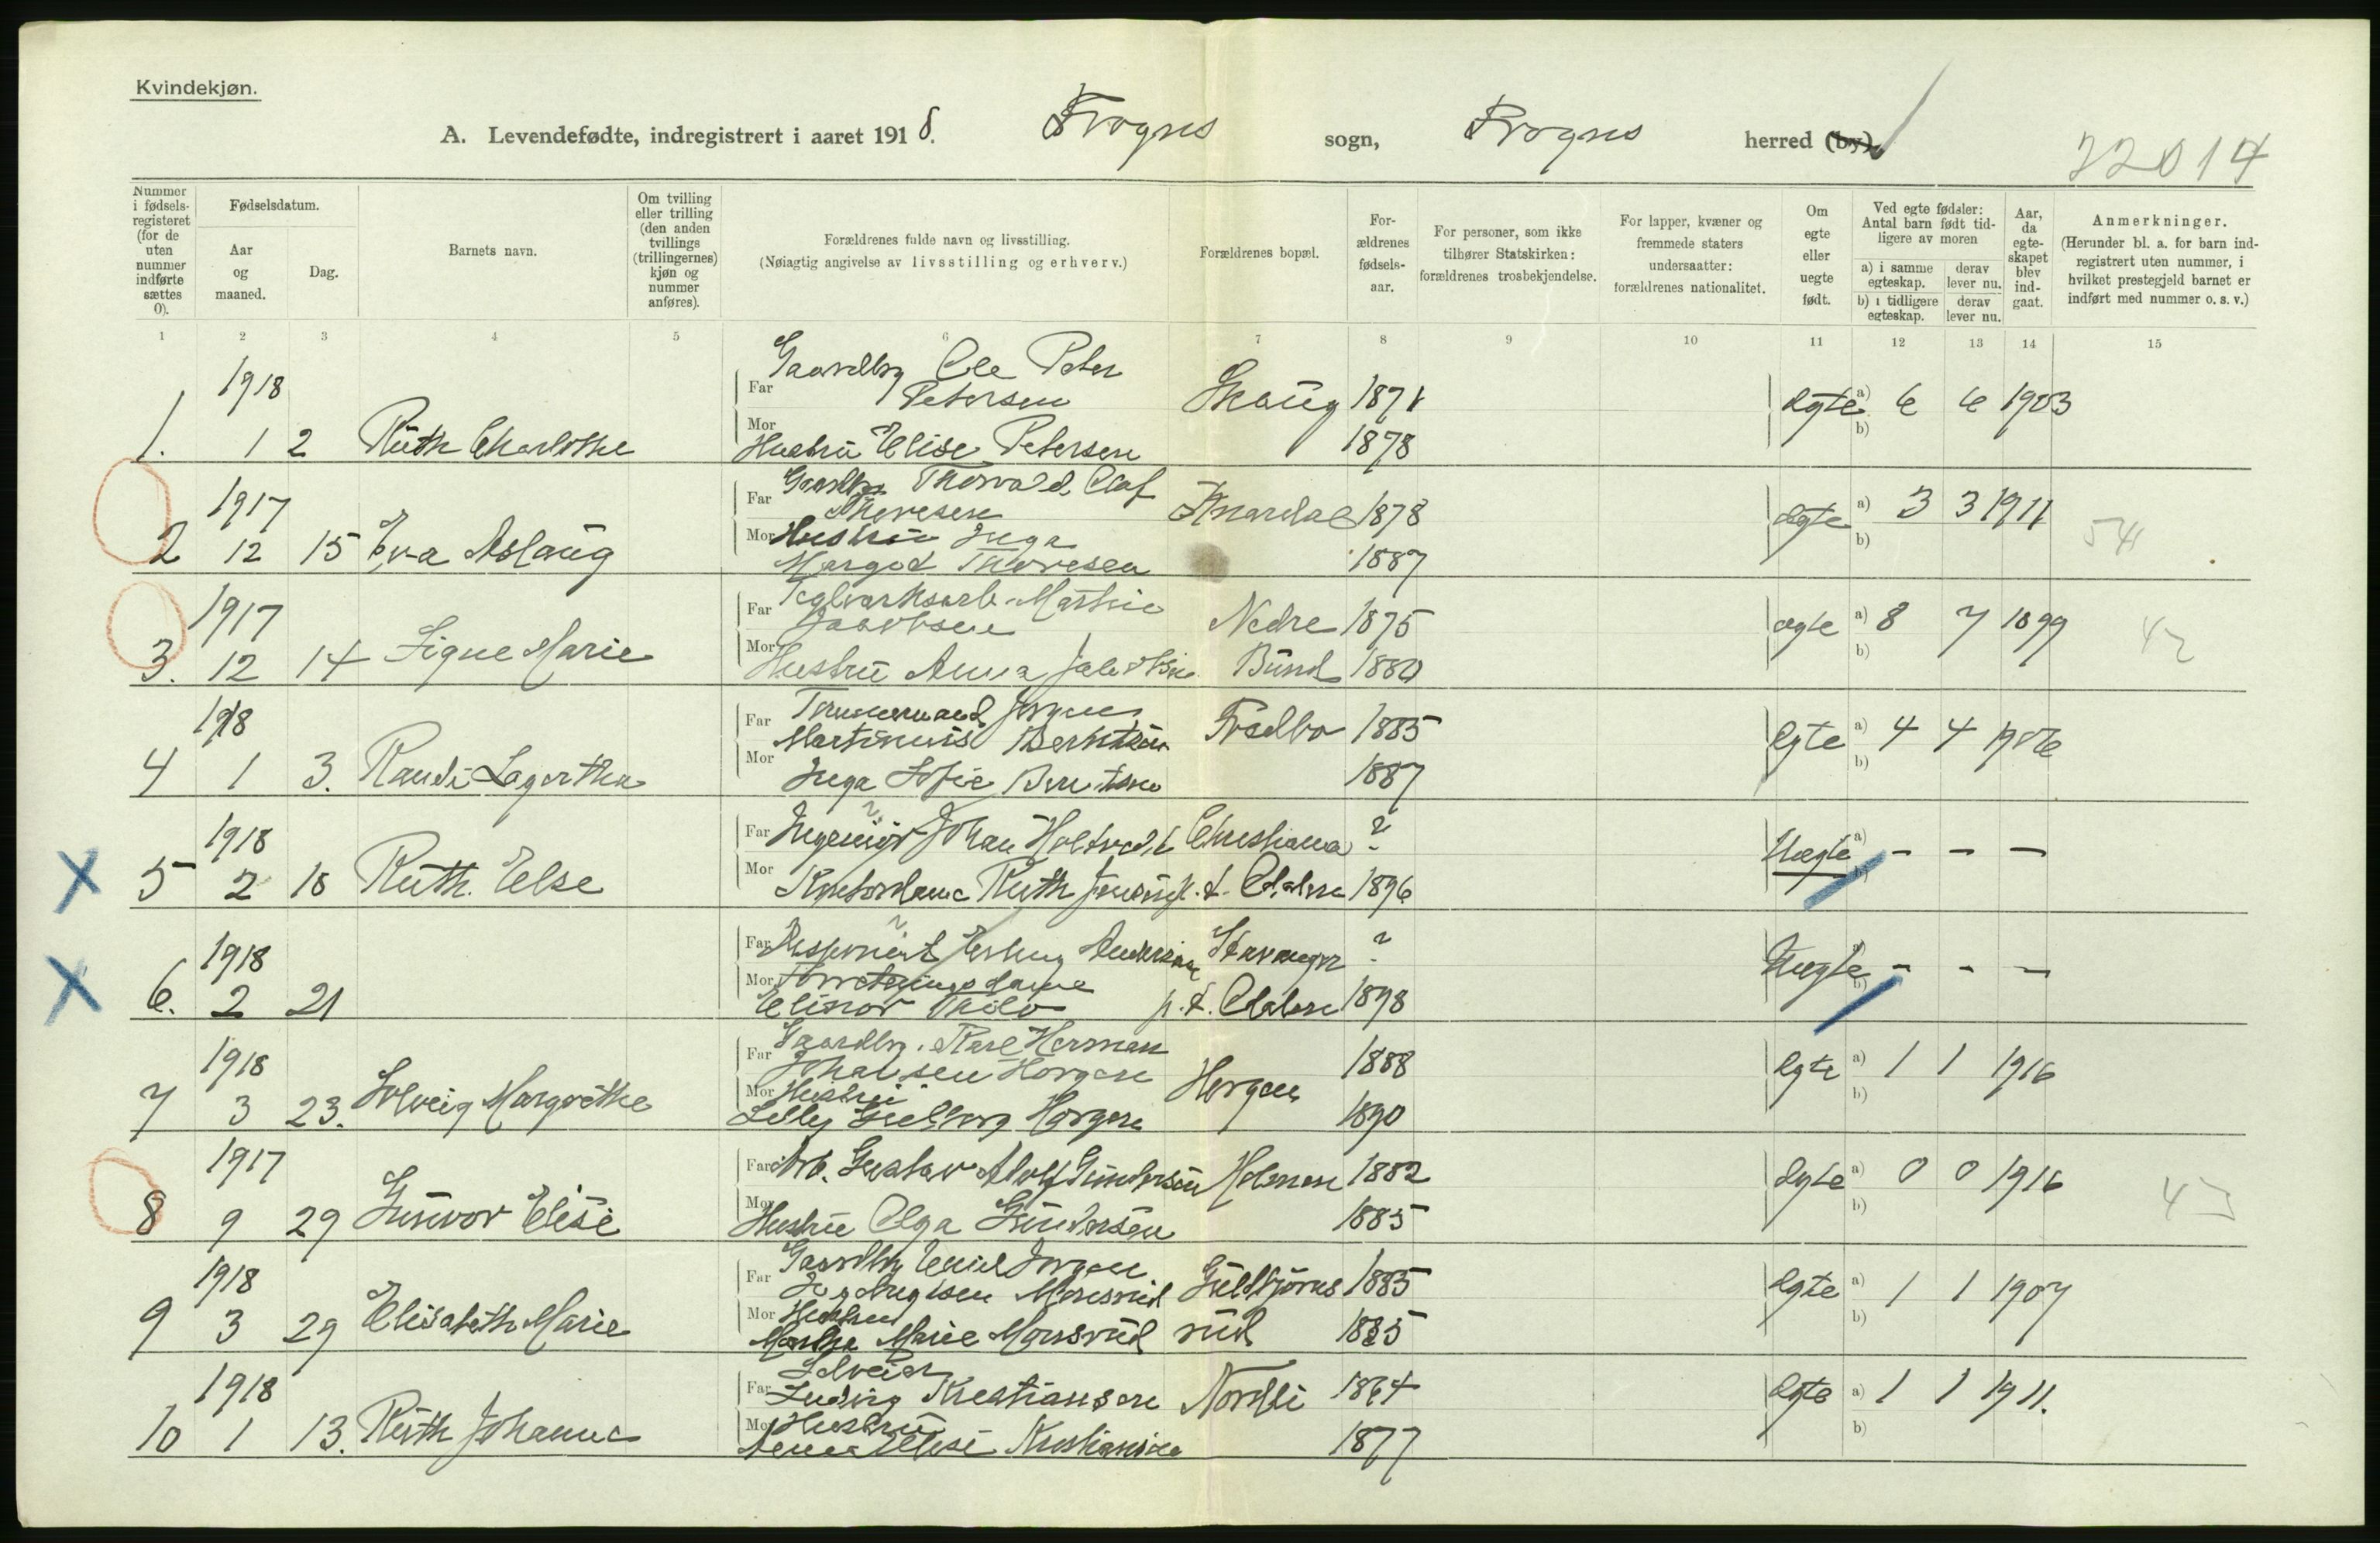 Kvindekjøn.
A. Levendefødte, indregistrert i aaret 1918. Frogns sogn, Frogns herred (by)
22014
Nummer i fødsels-registeret (for de uten nummer indførte sættes 0).
Fødselsdatum.
Aar og maaned.
Dag.
Barnets navn.
Om tvilling eller trilling (den anden tvillings (trillingernes) kjøn og nummer anføres).
Forældrenes fulde navn og livsstilling.
(Nøiagtig angivelse av livsstilling og erhverv.)
Forældrenes bopæl.
For-ældrenes fødsels-aar.
For personer, som ikke tilhører Statskirken: forældrenes trosbekjendelse.
For lapper, kvæner og fremmede staters undersaatter: forældrenes nationalitet.
Om egte eller uegte født.
Ved egte fødsler: Antal barn født tid-ligere av moren
a) i samme egteskap.
derav lever nu.
b) i tidligere egteskap.
derav lever nu.
Aar, da egte-skapet blev ind-gaat.
Anmerkninger.
(Herunder bl. a. for barn ind-registrert uten nummer, i hvilket prestegjeld barnet er indført med nummer o. s. v.)
1 2 3 4 5 6 7 8 9 10 11 12 13 14 15
1918 Far Gaardbr Ole Peter
Petersen Skaug 1871 Egte a) 6 6 1903
1. 1 2 Ruth Charlotte Mor Hustru Elise Petersen 1878 b)
1917 Far Gaardbr Thorvald Olaf
Thoresen 1878 Egte a) 3 3 1911
2 12 15 Eva Aslaug Mor Hustru Inga
Margot Thoresen 1887 b) 54
1917 Far Teglverksarb. Martin
Jacobsen Nedre 1875 egte a) 8 7 1899
3. 12 14 Signe Marie Mor Hustru Anna Jacobsen Bund 1880 b) 42
1918 Far Tømmermand Jørgen
Martinius Berntsen Fredbo 1885 Egte a) 4 4 1906
4 1 3. Randi Lagertha Mor Inga Sofie Berntsen 1887 b)
1918 Far Ingeniør Johan Holtvedt Christiania ? Uegte a) – – –
X 5 2 18 Ruth Else Mor Kontordame Ruth p.t. 1896 b)
1918 Far Disponent Erling Andersen Stavanger ? Uegte a) – – –
X 6. 2 21 Mor Forretningsdame
Elinor Thilo p.t. 1898 b)
1918 Far Gaardbr. Karl Herman
Johansen Horgen Horgen 1888 Egte a) 1 1 1916
7 3 23. Solveig Margrethe Mor Hustru
Lilly Horgen 1890 b)
1917 Far Arb. Gustav Adolf Gundersen Holmen 1882 Egte a) 0 0 1916
8 9 29 Gunvor Elise Mor Hustru Olga Gundersen 1885 b) 43
1918 Far Gaardbr Emil Jørgen
1885 Egte a) 1 1 1907
9 3 29 Elisabeth Marie Mor Hustru
Martha Marie rud 1885 b)
1918 Far Selveier
Ludvig Kristiansen Nordli 1864 Egte a) 1 1 1911.
10 1 13. Ruth Johanne Mor Hustru
Anna Elise Kristiansen 1877 b)